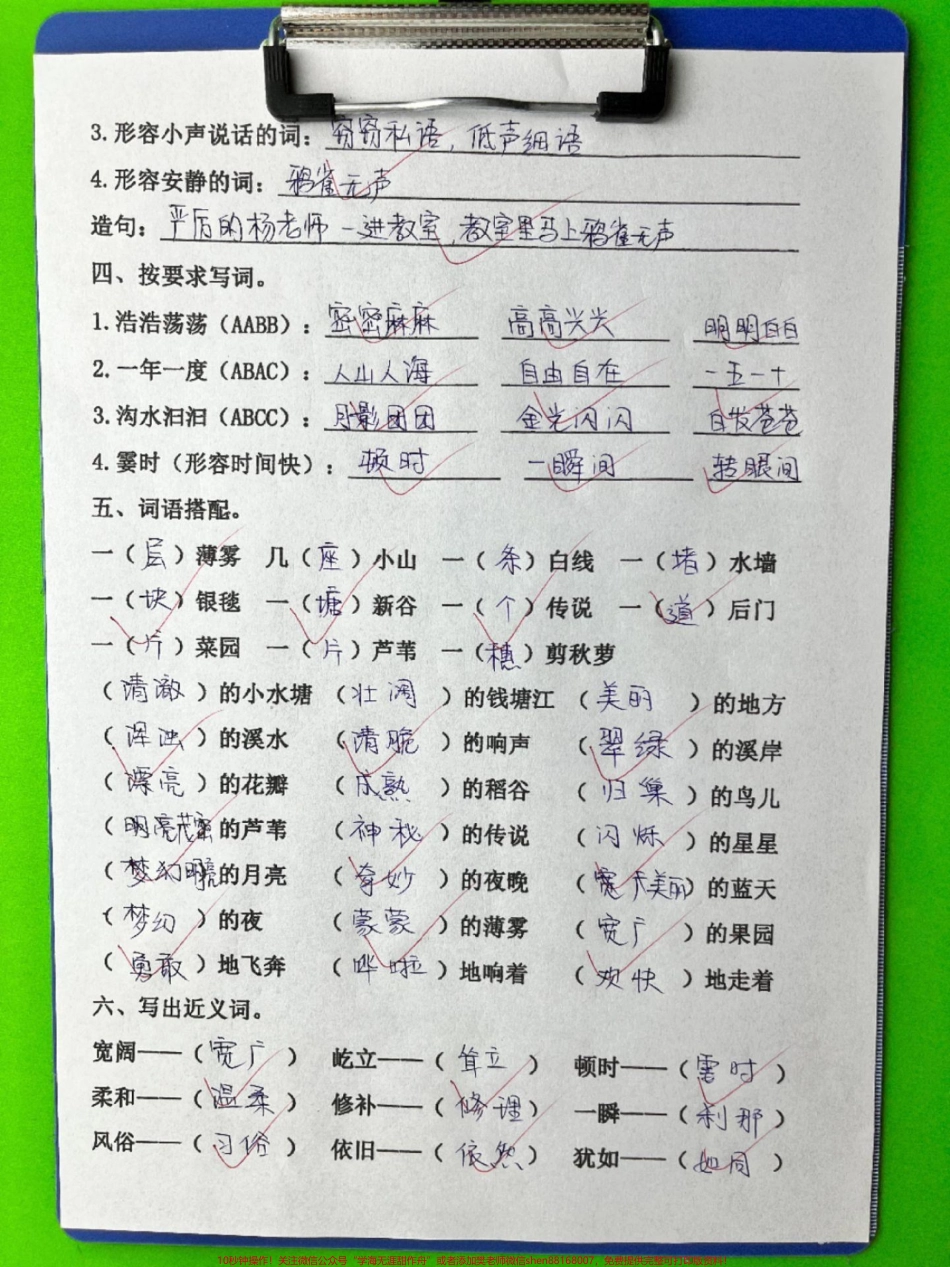 3.形容小声说话的词：窃窃私语，低声细语
4.形容安静的词：鸦雀无声
造句：严厉的杨老师一进教室，教室里马上鸦雀无声
四、按要求写词。
1.浩浩荡荡（AABB）：密密麻麻 高高兴兴 明明白白
2.一年一度（ABAC）：人山人海 自由自在 一五一十
3.沟水汩汩（ABCC）：月影团团 金光闪闪 白发苍苍
4.霎时（形容时间快）：顿时 一瞬间 转眼间
五、词语搭配。
一（层）薄雾 几（座）小山 一（条）白线 一（堵）水墙
一（块）银毯 一（塘）新谷 一（个）传说 一（道）后门
一（片）菜园 一（片）芦苇 一（穗）剪秋萝
（清澈）的小水塘（壮阔）的钱塘江（美丽）的地方
（浑浊）的溪水（清脆）的响声（翠绿）的溪岸
（漂亮）的花瓣（成熟）的稻谷（归巢）的鸟儿
（明亮茂密的芦苇（神秘）的传说（闪烁）的星星
（梦幻明亮的月亮（奇妙）的夜晚（宽大美丽）的蓝天
（梦幻）的夜（蒙蒙）的薄雾（宽广）的果园
（勇敢）地飞奔（哗啦）地响着（欢快）地走着
六、写出近义词。
宽阔——（宽广）屹立——（耸立）顿时——（霎时）
柔和——（温柔）修补——（修理）一瞬——（刹那）
风俗——（习俗）依旧——（依然）犹如——（如同）
10秒钟操作！关注微信公众号“学海无涯甜作舟”或者添加樊老师微信shen88168007，免费提供完整可打印版资料！